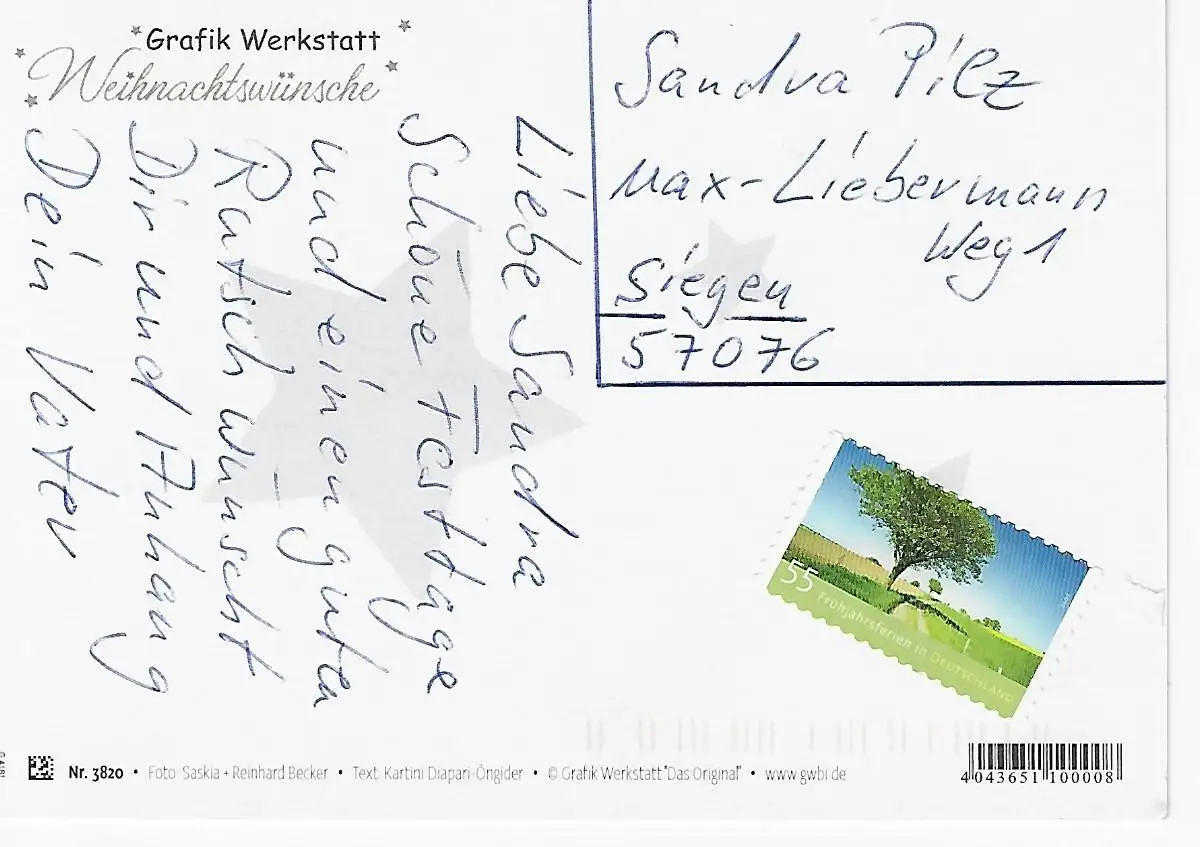 Grafik Werkstatt
Weihnachtswünsche
Liebe Sandra
Schöne Festtage
und einen guten
Rutsch wünscht
Dir und Anhang
Dein Vater
Sandra Pilz
Max-Liebermann
Weg 1
Siegen
57076
55 Frühjahrsferien in Deutschland
Nr. 3820 • Foto: Saskia + Reinhard Becker • Text: Kartini Diapari-Öngider • © Grafik Werkstatt "Das Original" • www.gwbi.de
4 043651 100008